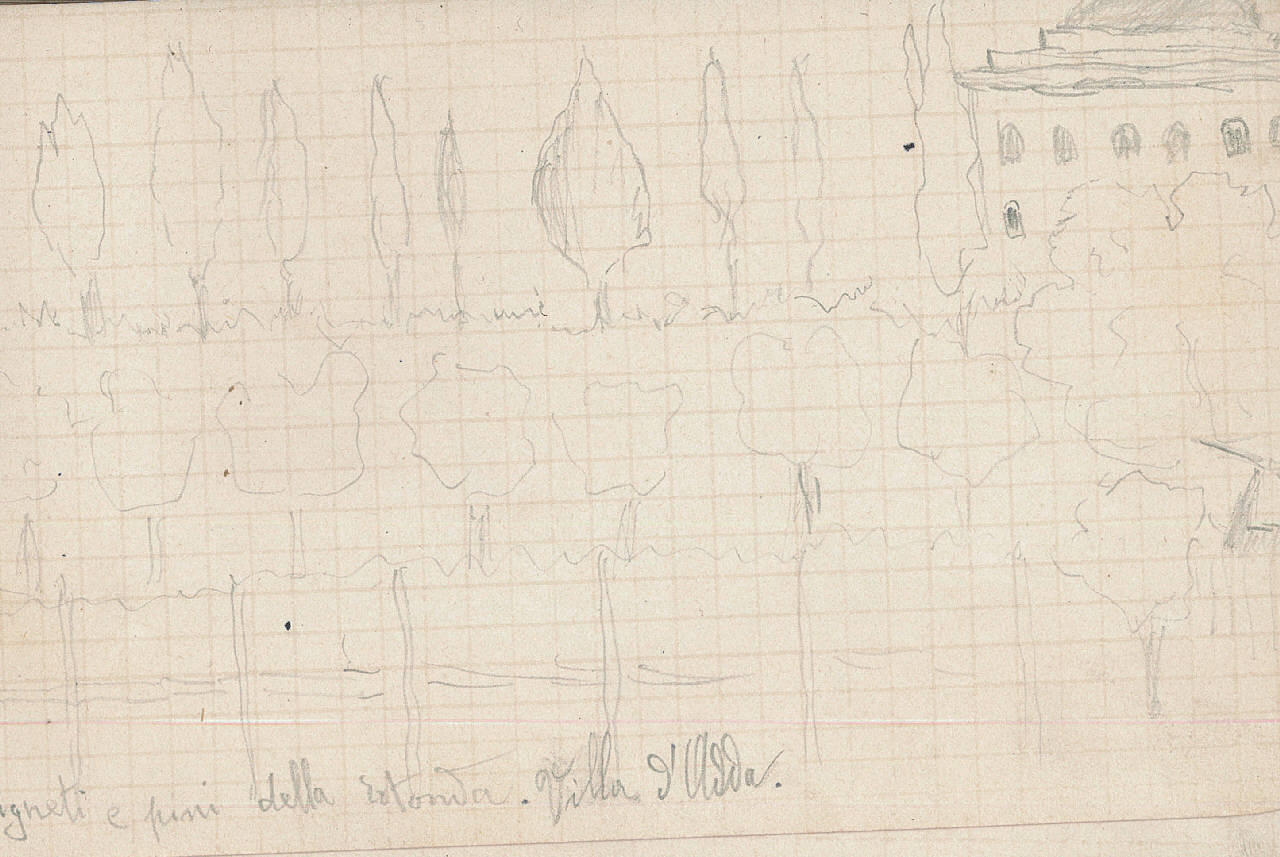 e pini della rotonda. Villa d'Adda.